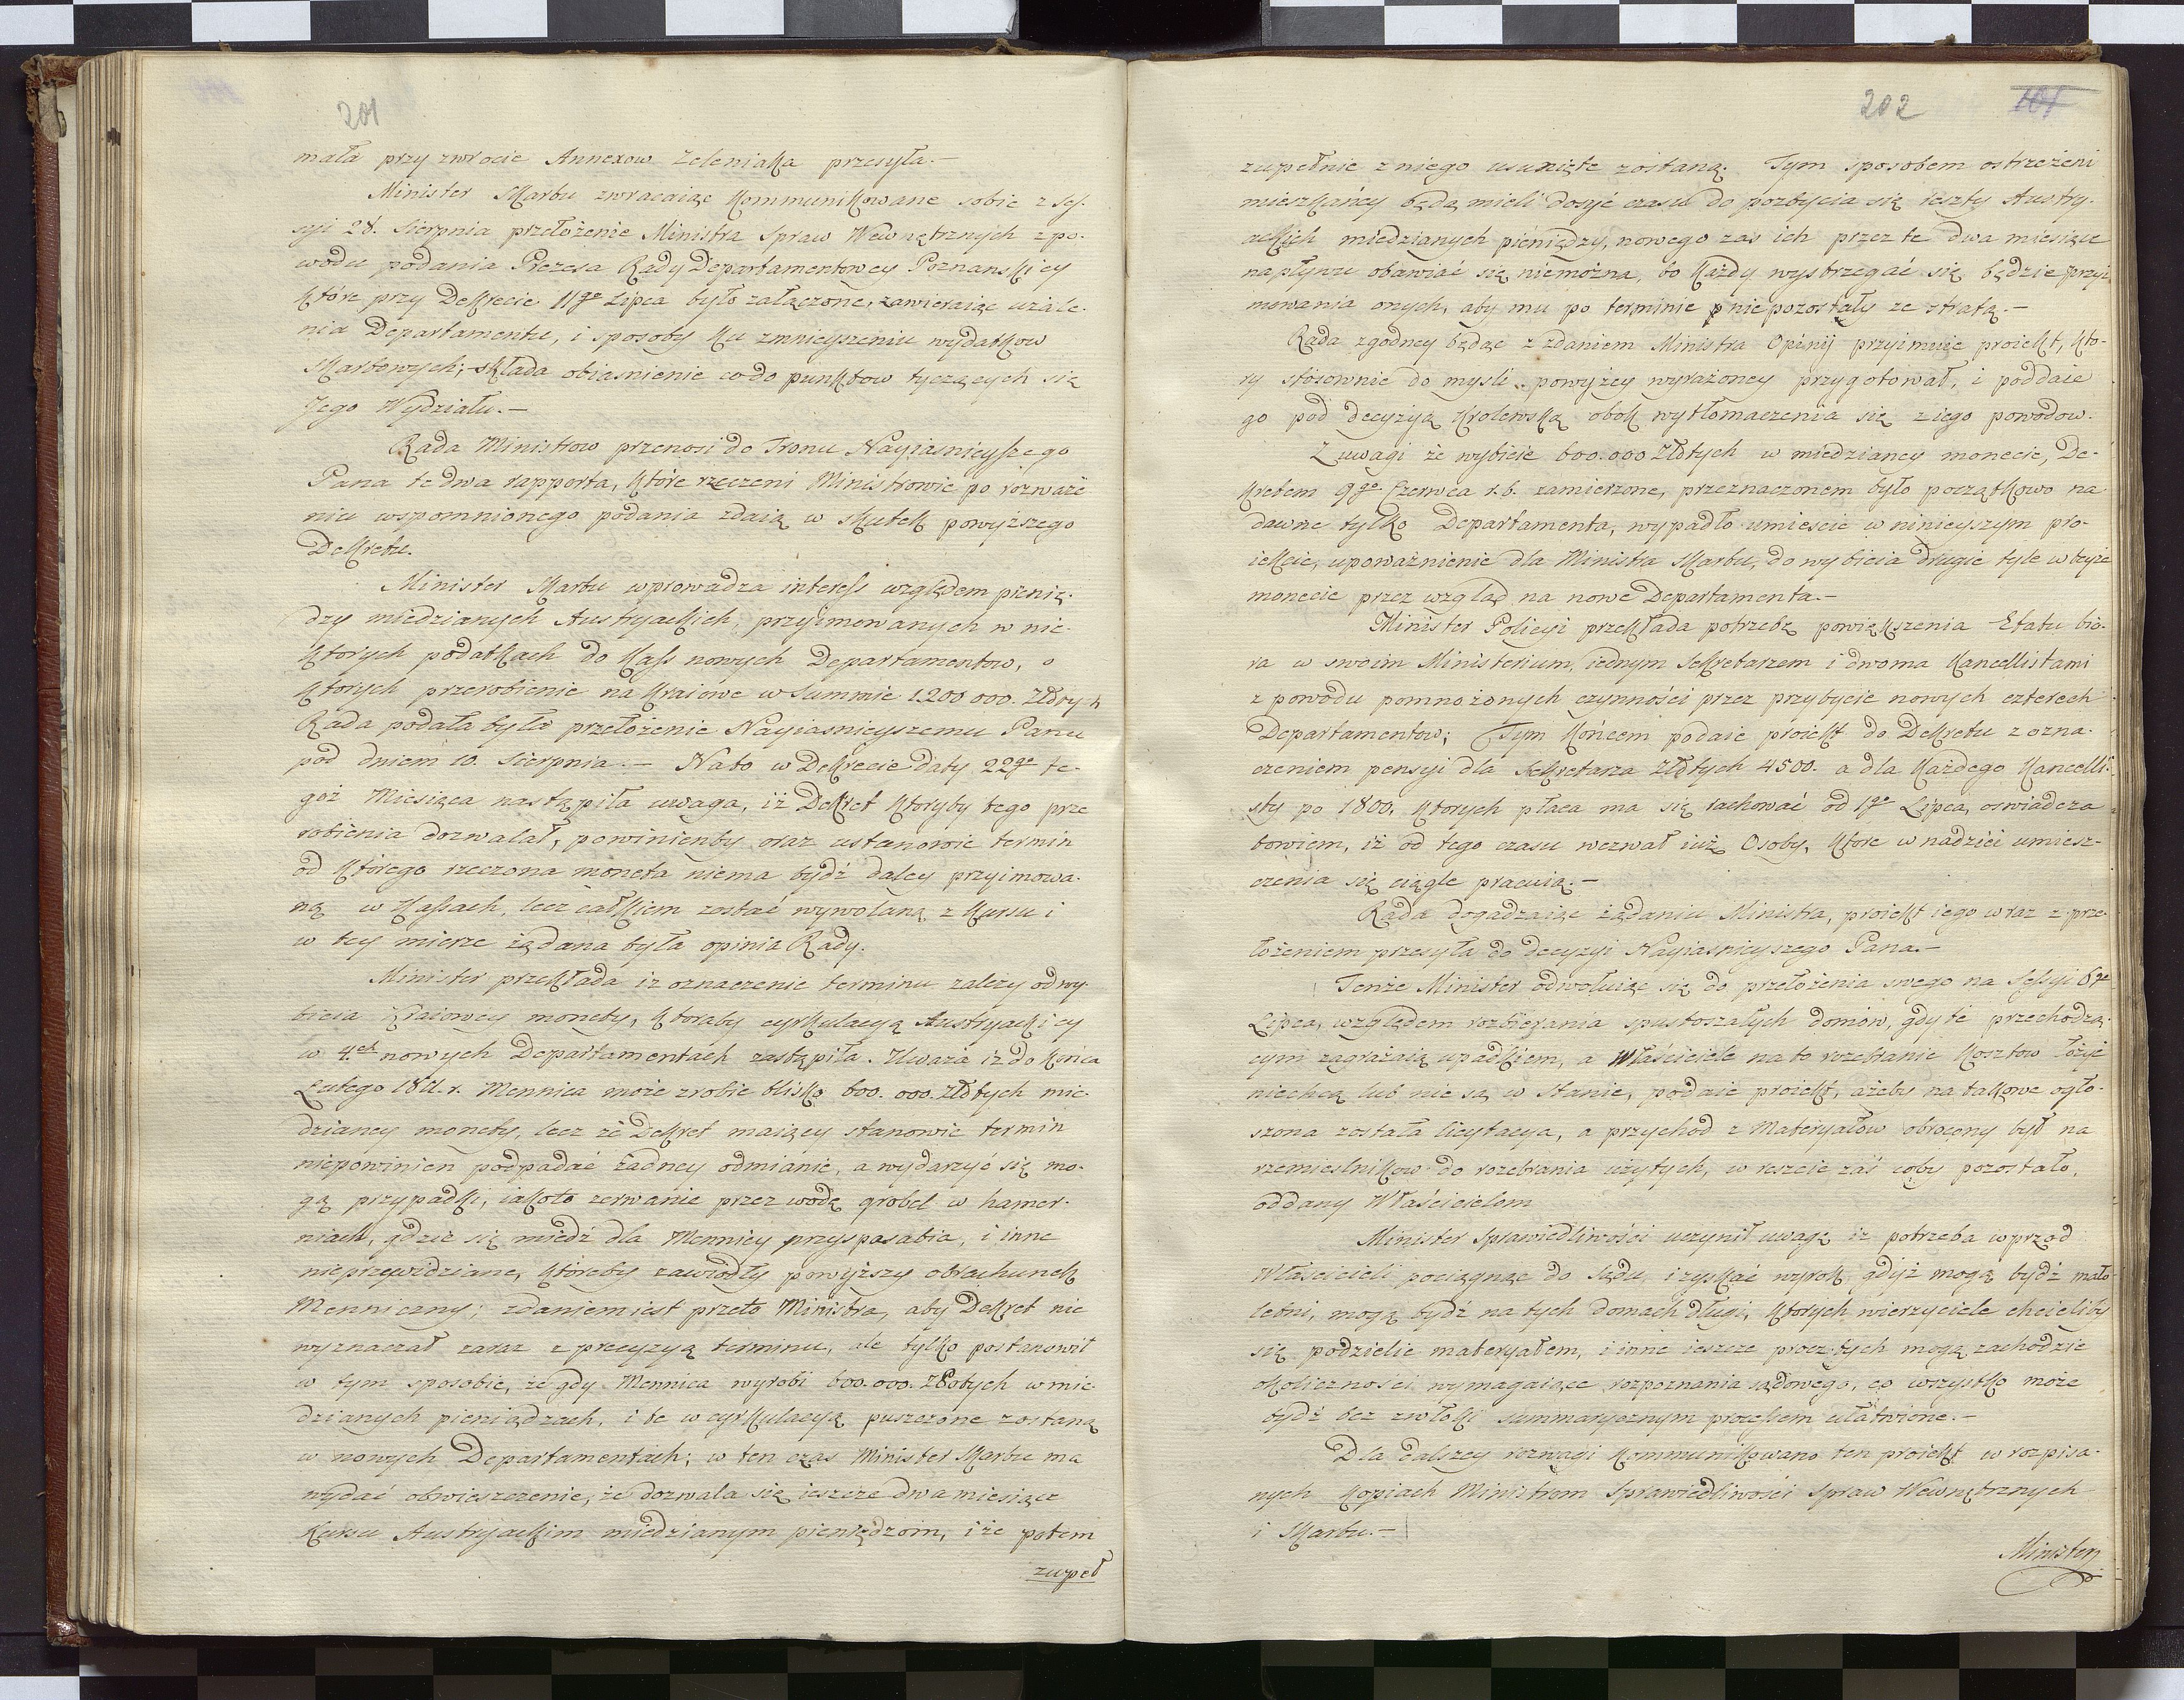 201
mała przy zwrocie Annexow Zeleniaka przesyła.—
Minister Skarbu zwracaiąc kommunikowane sobie z Ses-
syi 28. Sierpnia przełożenie Ministra Spraw Wewnętrznych z po-
wodu podania Prezesa Rady Departamentowey Poznanskiey
które przy Dekrecie 11go Lipca było załączone, zawieraiąc uzale-
nia Departamentu, i sposoby ku zmnieyszeniu wydatkow
Skarbowych; składa obiasnienie co do punktow tyczących się
Jego Wydziału.—
Rada Ministrow przenosi do Tronu Nayiasnieyszego
Pana te dwa rapporta, które rzeczeni Ministrowie po rozważe
niu wspomnionego podania zdaią w skutek powyższego
Dekretu.
Minister Skarbu wprowadza interess względem pienię-
dzy miedzianych Austryackich, przyimowanych w nie-
ktorych podatkach do Kass nowych Departamentow, o
ktorych przerobienie na kraiowe w Summie 1200 000. Złotych
Rada podała była przełożenie Nayiasnieyszemu Panu
pod dniem 10. Sierpnia.— Nato w Dekrecie daty 22go te-
goż Miesiąca nastąpiła uwaga, iż Dekret ktoryby tego prze
robienia dozwalał, powinienby oraz ustanowic termin
od którego rzeczona moneta niema bydź daley przyimowa-
ną w Kassach, lecz całkiem zostać wywołaną z kursu i
w tey mierze żądana była opinia Rady.
Minister przekłada iz oznaczenie terminu zależy od wy-
bicia kraiowey monety, ktoraby cyrkulacyą Austryackiey
w 4ech nowych Departamentach zastąpiła. Uważa iz do konca
Lutego 1811. r. Mennica może zrobic blisko 600. 000. Złotych mie-
dzianey monety, lecz że Dekret maiący stanowic termin
niepowinien podpadać żadney odmianie, a wydarzyć się mo-
gą przypadki, iakoto zerwanie przez wodę grobel w hamer-
niach, gdzie się miedź dla Mennicy przysposabia, i inne
nieprzewidziane, któreby zawiodły powyższy obrachunek
Menniczny; zdaniem iest przeto Ministra, aby Dekret nie
wyznaczał zaraz z precyzyą terminu, ale tylko postanowił
w tym sposobie, że gdy Mennica wyrobi 600.000. Złotych w mie-
dzianych pieniądzach, i te w cyrkulacyą puszczone zostaną
w nowych Departamentach; w ten czas Minister Skarbu ma
wydać obwieszczenie, że dozwala się ieszcze dwa miesiące
kursu Austryackim miedzianym pieniędzom, i że potem
zupeł
202
101
zupełnie z niego usunięte zostaną. Tym sposobem ostrzeżeni
mieszkańcy będą mieli dosyć czasu do pozbycia się reszty Austry-
ackich miedzianych pieniędzy, nowego zas ich przez te dwa miesiące
napływu obawiać się niemożna, bo każdy wystrzegać się będzie przyi
mowania onych, aby mu po terminie niepozostały ze stratą.—
Rada zgodney będąc z zdaniem Ministra Opinij przyimuie proiekt, kto-
ry stosownie do mysli powyżey wyrażoney przygotował, i poddaie
go pod decyzyą Krolewską obok wytłomaczenia się z iego powodow.
Z uwagi że wybicie 600.000 Złotych w miedzianey monecie, De-
kretem 9go Czerwca r.b. zamierzone, przeznaczonem było początkowo na
dawne tylko Departamenta, wypadło umiescic w ninieyszym pro-
iekcie, upoważnienie dla Ministra Skarbu, do wybicia drugie tyle w teyże
monecie przez wzgląd na nowe Departamenta.—
Minister Policyi przekłada potrzebę powiększenia Etatu bio-
ra w swoim Ministerium, iednym Sekretarzem i dwoma Kancellistami
z powodu pomnożonych czynności przez przybycie nowych czterech
Departamentow; Tym końcem podaie proiekt do Dekretu z ozna-
czeniem pensyi dla Sekretarza Złotych 4500. a dla każdego Kancelli-
sty po 1800, ktorych płaca ma się rachować od 1go Lipca, oswiadcza
bowiem, iż od tego czasu wezwał iuż Osoby, ktore w nadziei umiesz-
czenia się ciągle pracuią.—
Rada dogadzaiąc żądaniu Ministra, proiekt iego wraz z prze-
łożeniem przesyła do decyzyi Nayiasnieyszego Pana.—
Tenże Minister odwołuiąc się do przełożenia swego na Sessyi 6go
Lipca, względem rozbierania spustoszałych domow, gdy te przechodzą-
cym zagrażaią upadkiem, a Właściciele na to rozebranie kosztow łożyć
niechcą lub nie są w stanie, podaie proiekt, ażeby na takowe ogło-
szona została licytacya, a przychod z Materyałow obrocony był na
rzemieslnikow do rozebrania użytych, w reszcie zaś coby pozostało,
oddany Właścicielom
Minister Sprawiedliwości uczynił uwagę iz potrzeba wprzod
Właścicieli pociągnąc do Sądu, i zyskać wyrok gdyż mogą bydź mało-
letni, mogą bydź na tych domach długi, ktorych wierzyciele chcieliby
się podzielic materyałem, i inne ieszcze procz tych mogą zachodzic
okoliczności wymagaiące rozpoznania sądowego, co wszystko może
bydź bez zwłoki summarycznym processem ułatwione.—
Dla dalszey rozwagi kommunikowano ten proiekt w rozpisa-
nych kopiach Ministrom Sprawiedliwości Spraw Wewnętrznych
i Skarbu.—
Minister